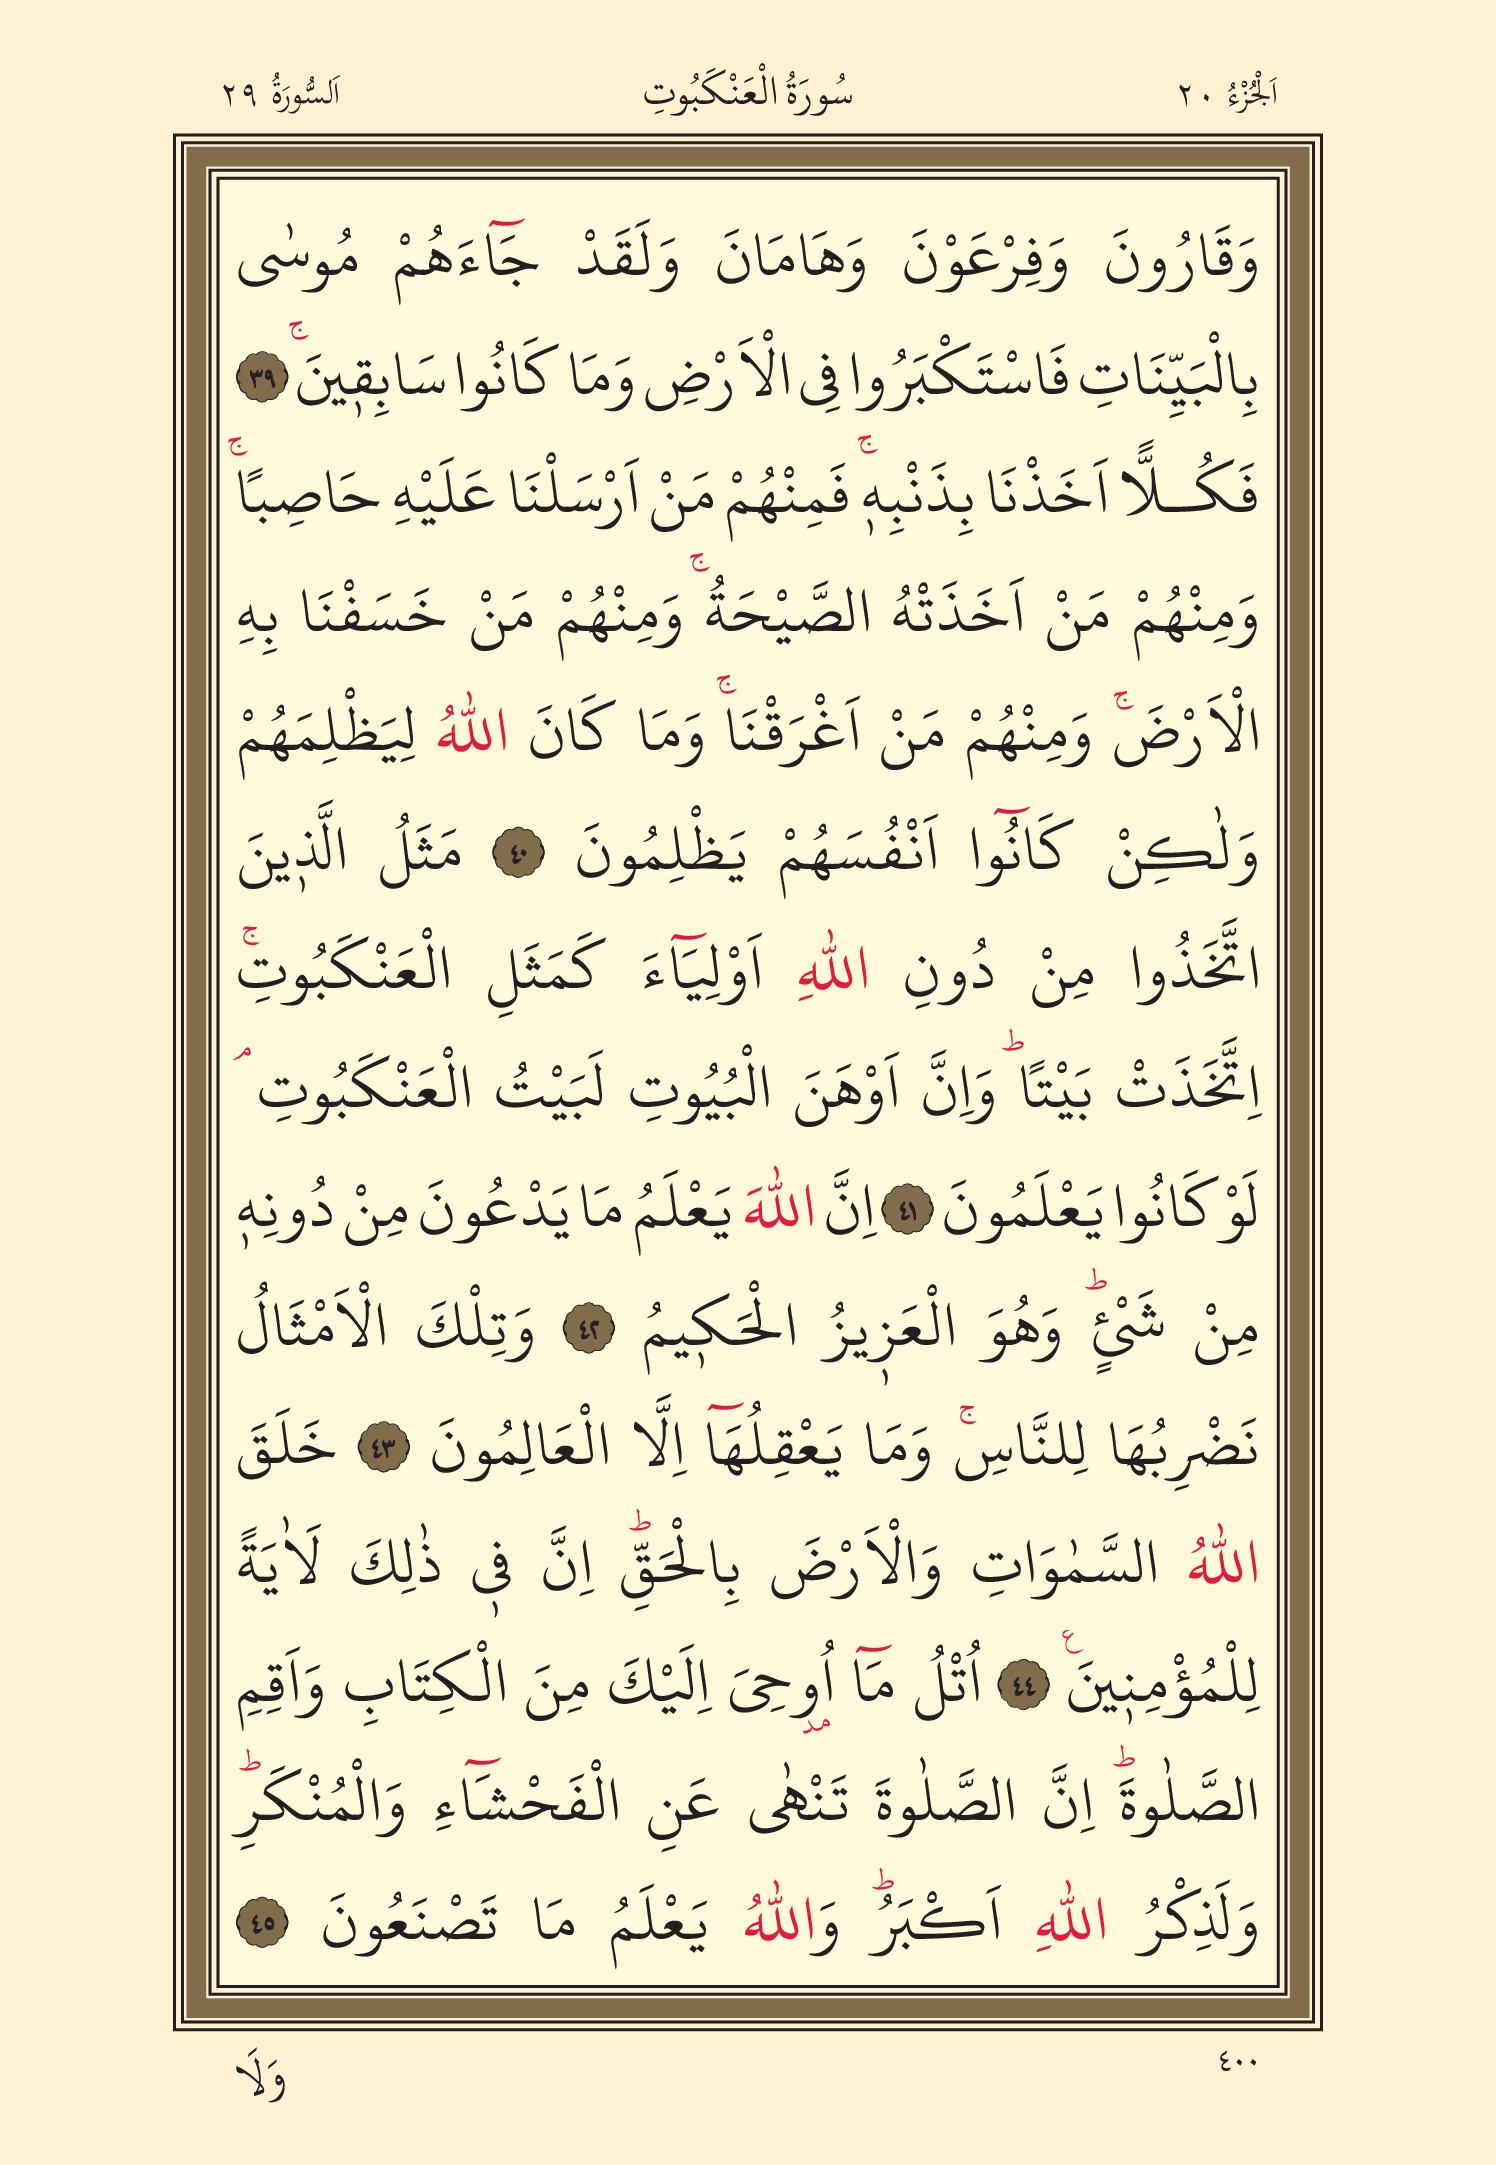 اَلْجُزْءُ ٢٠ سُورَةُ الْعَنْكَبُوتِ اَلسُّورَةُ ٢٩
وَقَارُونَ وَفِرْعَوْنَ وَهَامَانَ وَلَقَدْ جَٓاءَهُمْ مُوسٰى
بِالْبَيِّنَاتِ فَاسْتَكْبَرُوا فِى الْاَرْضِ وَمَا كَانُوا سَابِقٖينَۚ ٣٩
فَكُـلًّا اَخَذْنَا بِذَنْبِهٖۚ فَمِنْهُمْ مَنْ اَرْسَلْنَا عَلَيْهِ حَاصِبًاۚ
وَمِنْهُمْ مَنْ اَخَذَتْهُ الصَّيْحَةُۚ وَمِنْهُمْ مَنْ خَسَفْنَا بِهِ
الْاَرْضَۚ وَمِنْهُمْ مَنْ اَغْرَقْنَاۚ وَمَا كَانَ اللّٰهُ لِيَظْلِمَهُمْ
وَلٰكِنْ كَانُٓوا اَنْفُسَهُمْ يَظْلِمُونَ ٤٠ مَثَلُ الَّذٖينَ
اتَّخَذُوا مِنْ دُونِ اللّٰهِ اَوْلِيَٓاءَ كَمَثَلِ الْعَنْكَبُوتِۚ
اِتَّخَذَتْ بَيْتًاؕ وَاِنَّ اَوْهَنَ الْبُيُوتِ لَبَيْتُ الْعَنْكَبُوتِۘ
لَوْ كَانُوا يَعْلَمُونَ ٤١ اِنَّ اللّٰهَ يَعْلَمُ مَا يَدْعُونَ مِنْ دُونِهٖ
مِنْ شَیْئٍؕ وَهُوَ الْعَزٖيزُ الْحَكٖيمُ ٤٢ وَتِلْكَ الْاَمْثَالُ
نَضْرِبُهَا لِلنَّاسِۚ وَمَا يَعْقِلُهَٓا اِلَّا الْعَالِمُونَ ٤٣ خَلَقَ
اللّٰهُ السَّمٰوَاتِ وَالْاَرْضَ بِالْحَقِّؕ اِنَّ فٖى ذٰلِكَ لَاٰيَةً
لِلْمُؤْمِنٖينَࣖ ٤٤ اُتْلُ مَٓا اُو۫حِىَ اِلَيْكَ مِنَ الْكِتَابِ وَاَقِمِ
الصَّلٰوةَؕ اِنَّ الصَّلٰوةَ تَنْهٰى عَنِ الْفَحْشَٓاءِ وَالْمُنْكَرِؕ
وَلَذِكْرُ اللّٰهِ اَكْبَرُؕ وَاللّٰهُ يَعْلَمُ مَا تَصْنَعُونَ ٤٥
٤٠٠ وَلَا